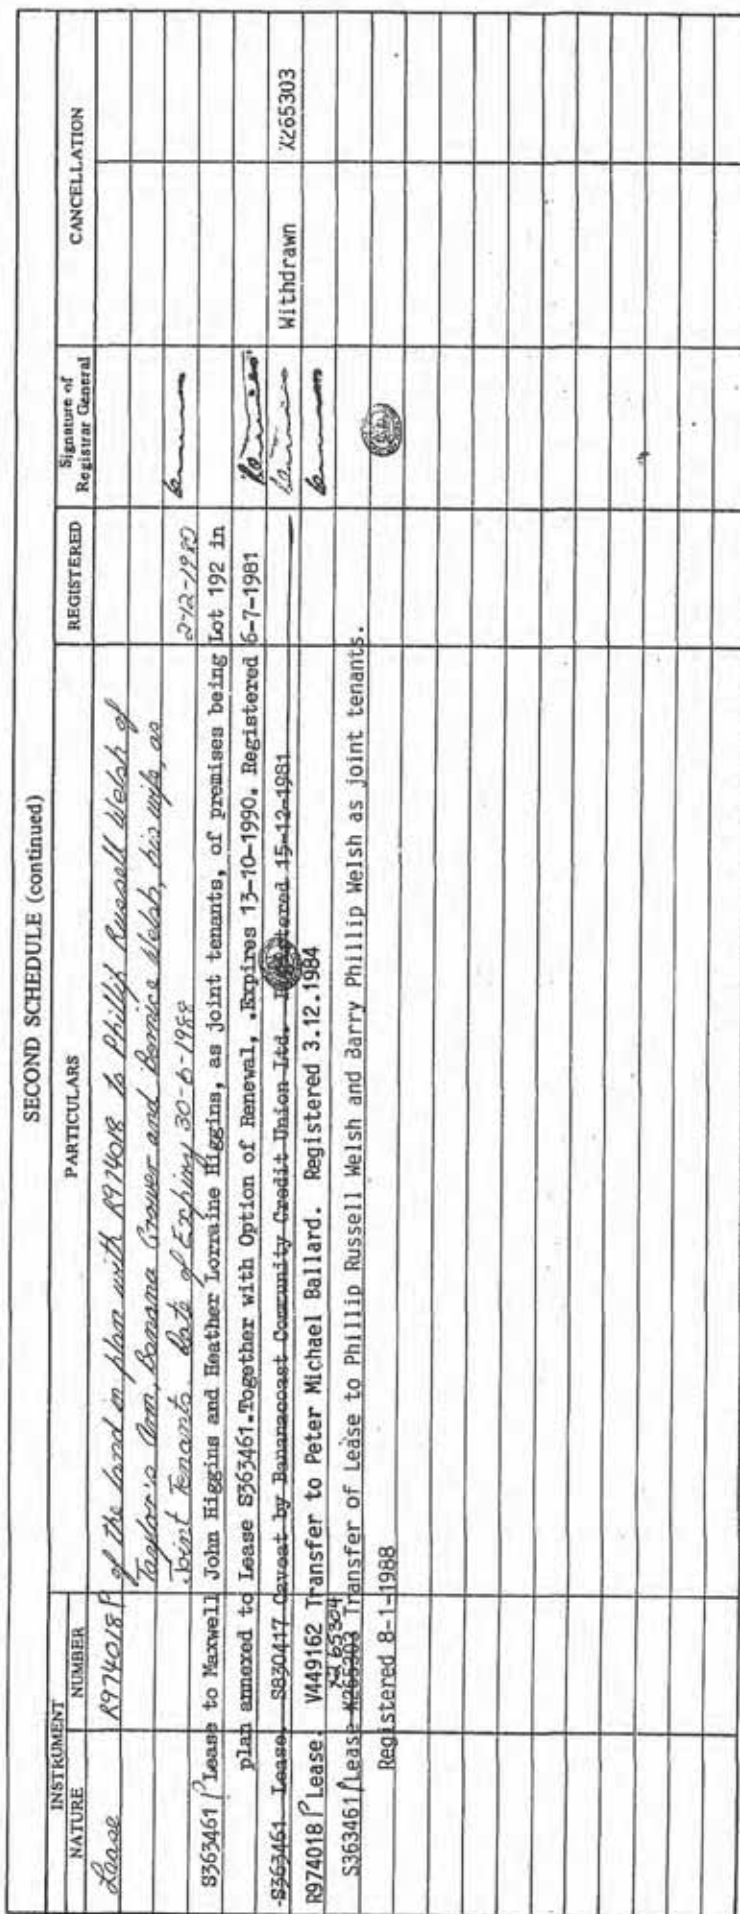 SECOND SCHEDULE (continued)
INSTRUMENT
NATURE NUMBER PARTICULARS REGISTERED Signature of Registrar General CANCELLATION
Lease R974018P of the land in plan with R974018 to Phillip Russell Welsh of
Taylor's Arm, Banana Grower and Bernice Welsh, his wife, as
Joint Tenants. Date of Expiry 30-6-1988 2-12-1980
S363461 P Lease to Maxwell John Higgins and Heather Lorraine Higgins, as joint tenants, of premises being Lot 192 in
plan annexed to Lease S363461.Together with Option of Renewal, .Expires 13-10-1990. Registered 6-7-1981
-S363461 Lease. S830417 Caveat by Bananacoast Community Credit Union Ltd. Registered 15-12-1981 Withdrawn X265303
R974018 P Lease. V449162 Transfer to Peter Michael Ballard. Registered 3.12.1984
X265304
S363461 P Lease X265303 Transfer of Lease to Phillip Russell Welsh and Barry Phillip Welsh as joint tenants.
Registered 8-1-1988